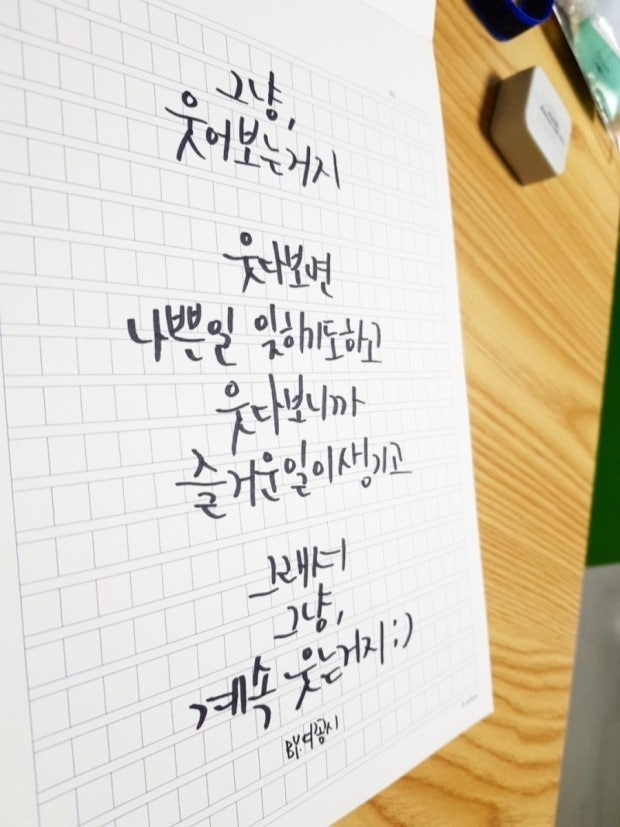 그냥,
웃어보는거지
웃다보면
나쁜일 잊하기도하고
웃다보니까
즐거운일이생기고
그래서
그냥,
계속 웃는거지 :)